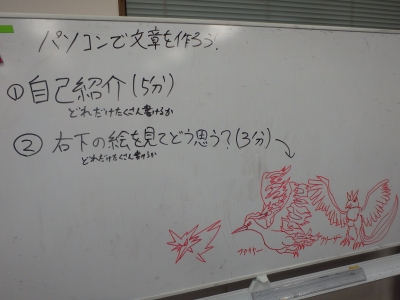 パソコンで文章を作ろう.
① 自己紹介(5分)
どれだけたくさん書けるか
② 右下の絵を見てどう思う?(3分)
どれだけたくさん書けるか
ファイヤー
フリーザー